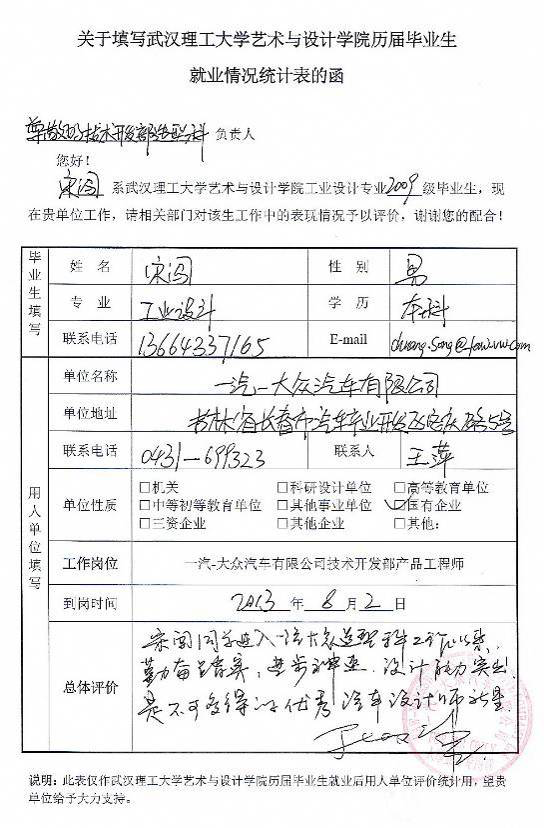 关于填写武汉理工大学艺术与设计学院历届毕业生
就业情况统计表的函
尊敬的技术开发部造型科 负责人
您好!
宋闯 系武汉理工大学艺术与设计学院工业设计专业2009级毕业生，现
在贵单位工作，请相关部门对该生工作中的表现情况予以评价，谢谢您的配合!
毕业生填写
姓 名 宋闯 性 别 男
专 业 工业设计 学 历 本科
联系电话 13664337165 E-mail chuang.song@faw-vw.com
用人单位填写
单位名称 一汽-大众汽车有限公司
单位地址 吉林省长春市汽车产业开发区安庆路5号
联系电话 0431-699323 联系人 王萍
单位性质
□机关 □科研设计单位 □高等教育单位
□中等初等教育单位 □其他事业单位 ☑国有企业
□三资企业 □其他企业 □其他:
工作岗位 一汽-大众汽车有限公司技术开发部产品工程师
到岗时间 2013 年 8 月 2 日
总体评价
宋闯同学进入一汽大众造型科工作以来
勤奋踏实，进步神速，设计能力突出
是不可多得的优秀汽车设计师新星
说明: 此表仅作武汉理工大学艺术与设计学院历届毕业生就业后用人单位评价统计用，望贵
单位给予大力支持。